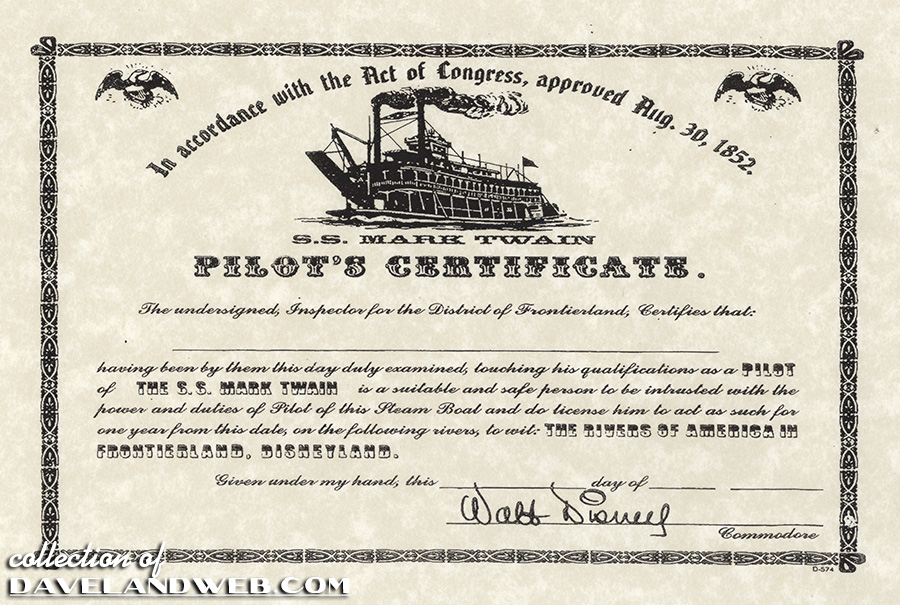 In accordance with the Act of Congress, approved Aug. 30, 1852.
S.S. MARK TWAIN
PILOT'S CERTIFICATE.
The undersigned, Inspector for the District of Frontierland, Certifies that:
having been by them this day duly examined, touching his qualifications as a PILOT
of THE S.S. MARK TWAIN is a suitable and safe person to be intrusted with the
power and duties of Pilot of this Steam Boat and do license him to act as such for
one year from this date, on the following rivers, to wit: THE RIVERS OF AMERICA IN
FRONTIERLAND, DISNEYLAND.
Given under my hand, this day of
Walt Disney
Commodore
D-574
collection of
DAVELANDWEB.COM